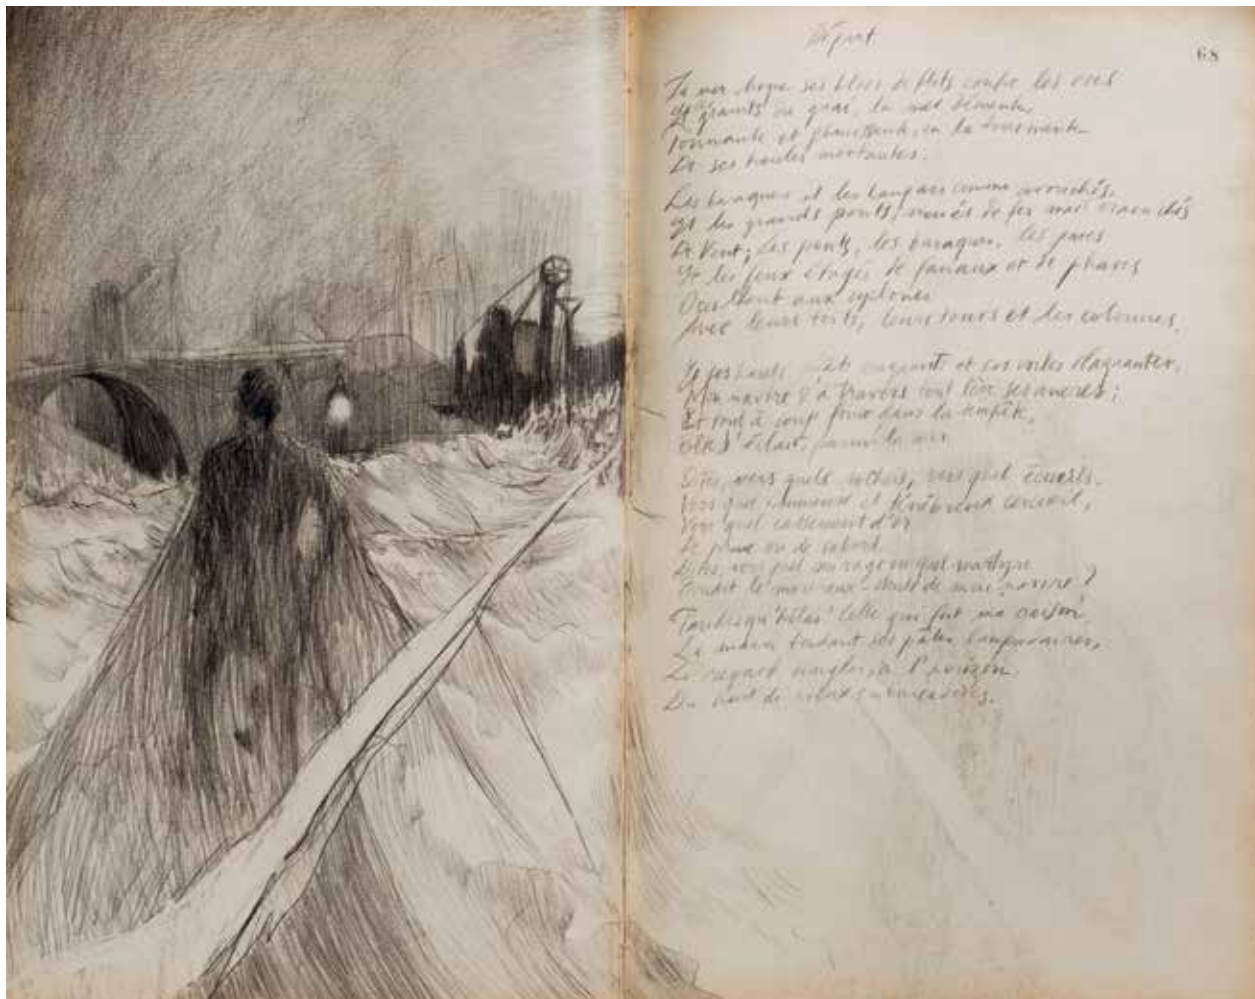 Départ
68
La mer choque ses blocs de flots contre les rocs
Et les granits du quai, la mer démente,
Tonnante et gémissante, en la tourmente
De ses houles montantes.
Les baraques et les hangars comme arrachés,
Et les grands ponts, noués de fer mais cravachés
De Vent; les ponts, les baraques, les gares
Et les feux étagés de fanaux et de phares
Oscillent aux cyclones
Avec leurs toits, leurs tours et les colonnes.
Et ses hauts mâts craquants et ses voiles claquantes,
Mon navire d'à travers tout ses ancres;
Et tout à coup dans la tempête,
parmi la mer
Dites, vers quels vers quel écueils,
Vers quel immense et ténébreux cerceuil,
Vers quel cassement d'or
De proue ou de sabord
Dites, vers quel mirage ou quel martyre
le mort aux de mon navire ?
Tandis qu'hélas! Celle qui fut ma raison,
La main tendant ses pâles lampadaires,
Le regard à l'horizon
Du haut de vieux embarcadères.